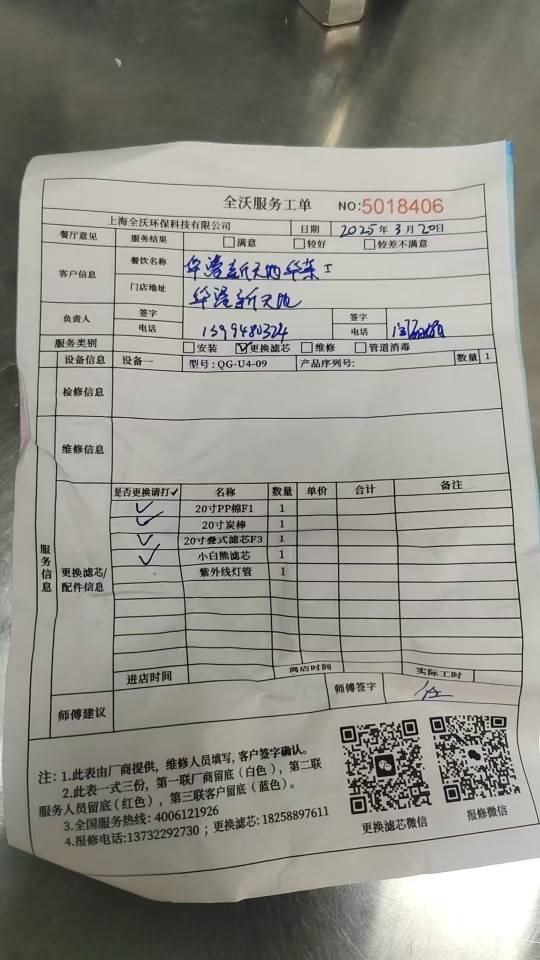 全沃服务工单 NO:5018406
上海全沃环保科技有限公司 日期 2025年3月20日
餐厅意见 服务结果 □满意 □较好 □较差不满意
客户信息 餐饮名称 华港新天地华莱士
门店地址 华港新天地
负责人 签字 签字
电话 13994780324 电话
服务类别 □安装 ☑更换滤芯 □维修 □管道消毒
设备信息 设备一 型号:QG-U4-09 产品序列号: 数量 1
检修信息
维修信息
服务信息
更换滤芯/配件信息
是否更换请打✓ 名称 数量 单价 合计 备注
✓ 20寸PP棉F1 1
✓ 20寸炭棒 1
✓ 20寸叠式滤芯F3 1
✓ 小白熊滤芯 1
紫外线灯管 1
进店时间 离店时间 实际工时
师傅建议 师傅签字
注: 1.此表由厂商提供，维修人员填写, 客户签字确认。
2.此表一式三份，第一联厂商留底 (白色) ，第二联
服务人员留底 (红色) ，第三联客户留底 (蓝色) 。
3.全国服务热线: 4006121926
4.报修电话:13732292730 ; 更换滤芯: 18258897611
更换滤芯微信 报修微信